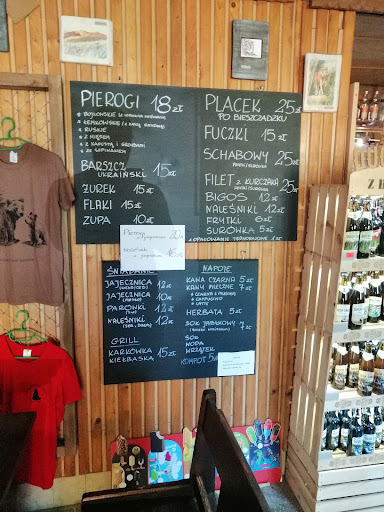 PIEROGI 18 zł
BOJKOWSKIE
ŁEMKOWSKIE
RUSKIE
Z MIĘSEM
Z KAPUSTĄ I GRZYBAMI
ZE SZPINAKIEM
BARSZCZ
UKRAIŃSKI 15 zł
ŻUREK 15 zł
FLAKI 15 zł
ZUPA 10 zł
PLACEK 25 zł
PO BIESZCZADZKU
FUCZKI 15 zł
SCHABOWY 25 zł
FILET Z KURCZAKA 25
BIGOS 12 zł
NALEŚNIKI 12 zł
FRYTKI 6 zł
SURÓWKA 5 zł
OPAKOWANIE JEDNORAZOWE 1 zł
ŚNIADANIE
JAJECZNICA 12 zł
JAJECZNICA 10 zł
PARÓWKI 10 zł
NALEŚNIKI 12 zł
GRILL
KARKÓWKA 15 zł
KIEŁBASKA
NAPOJE
KAWA CZARNA 5 zł
KAWY MLECZNE 7 zł
CZARNA Z MLEKIEM
CAPPUCCINO
LATTE
HERBATA 5 zł
SOK JABŁKOWY 7 zł
SOK
WODA
WRZĄTEK
KOMPOT 5 zł